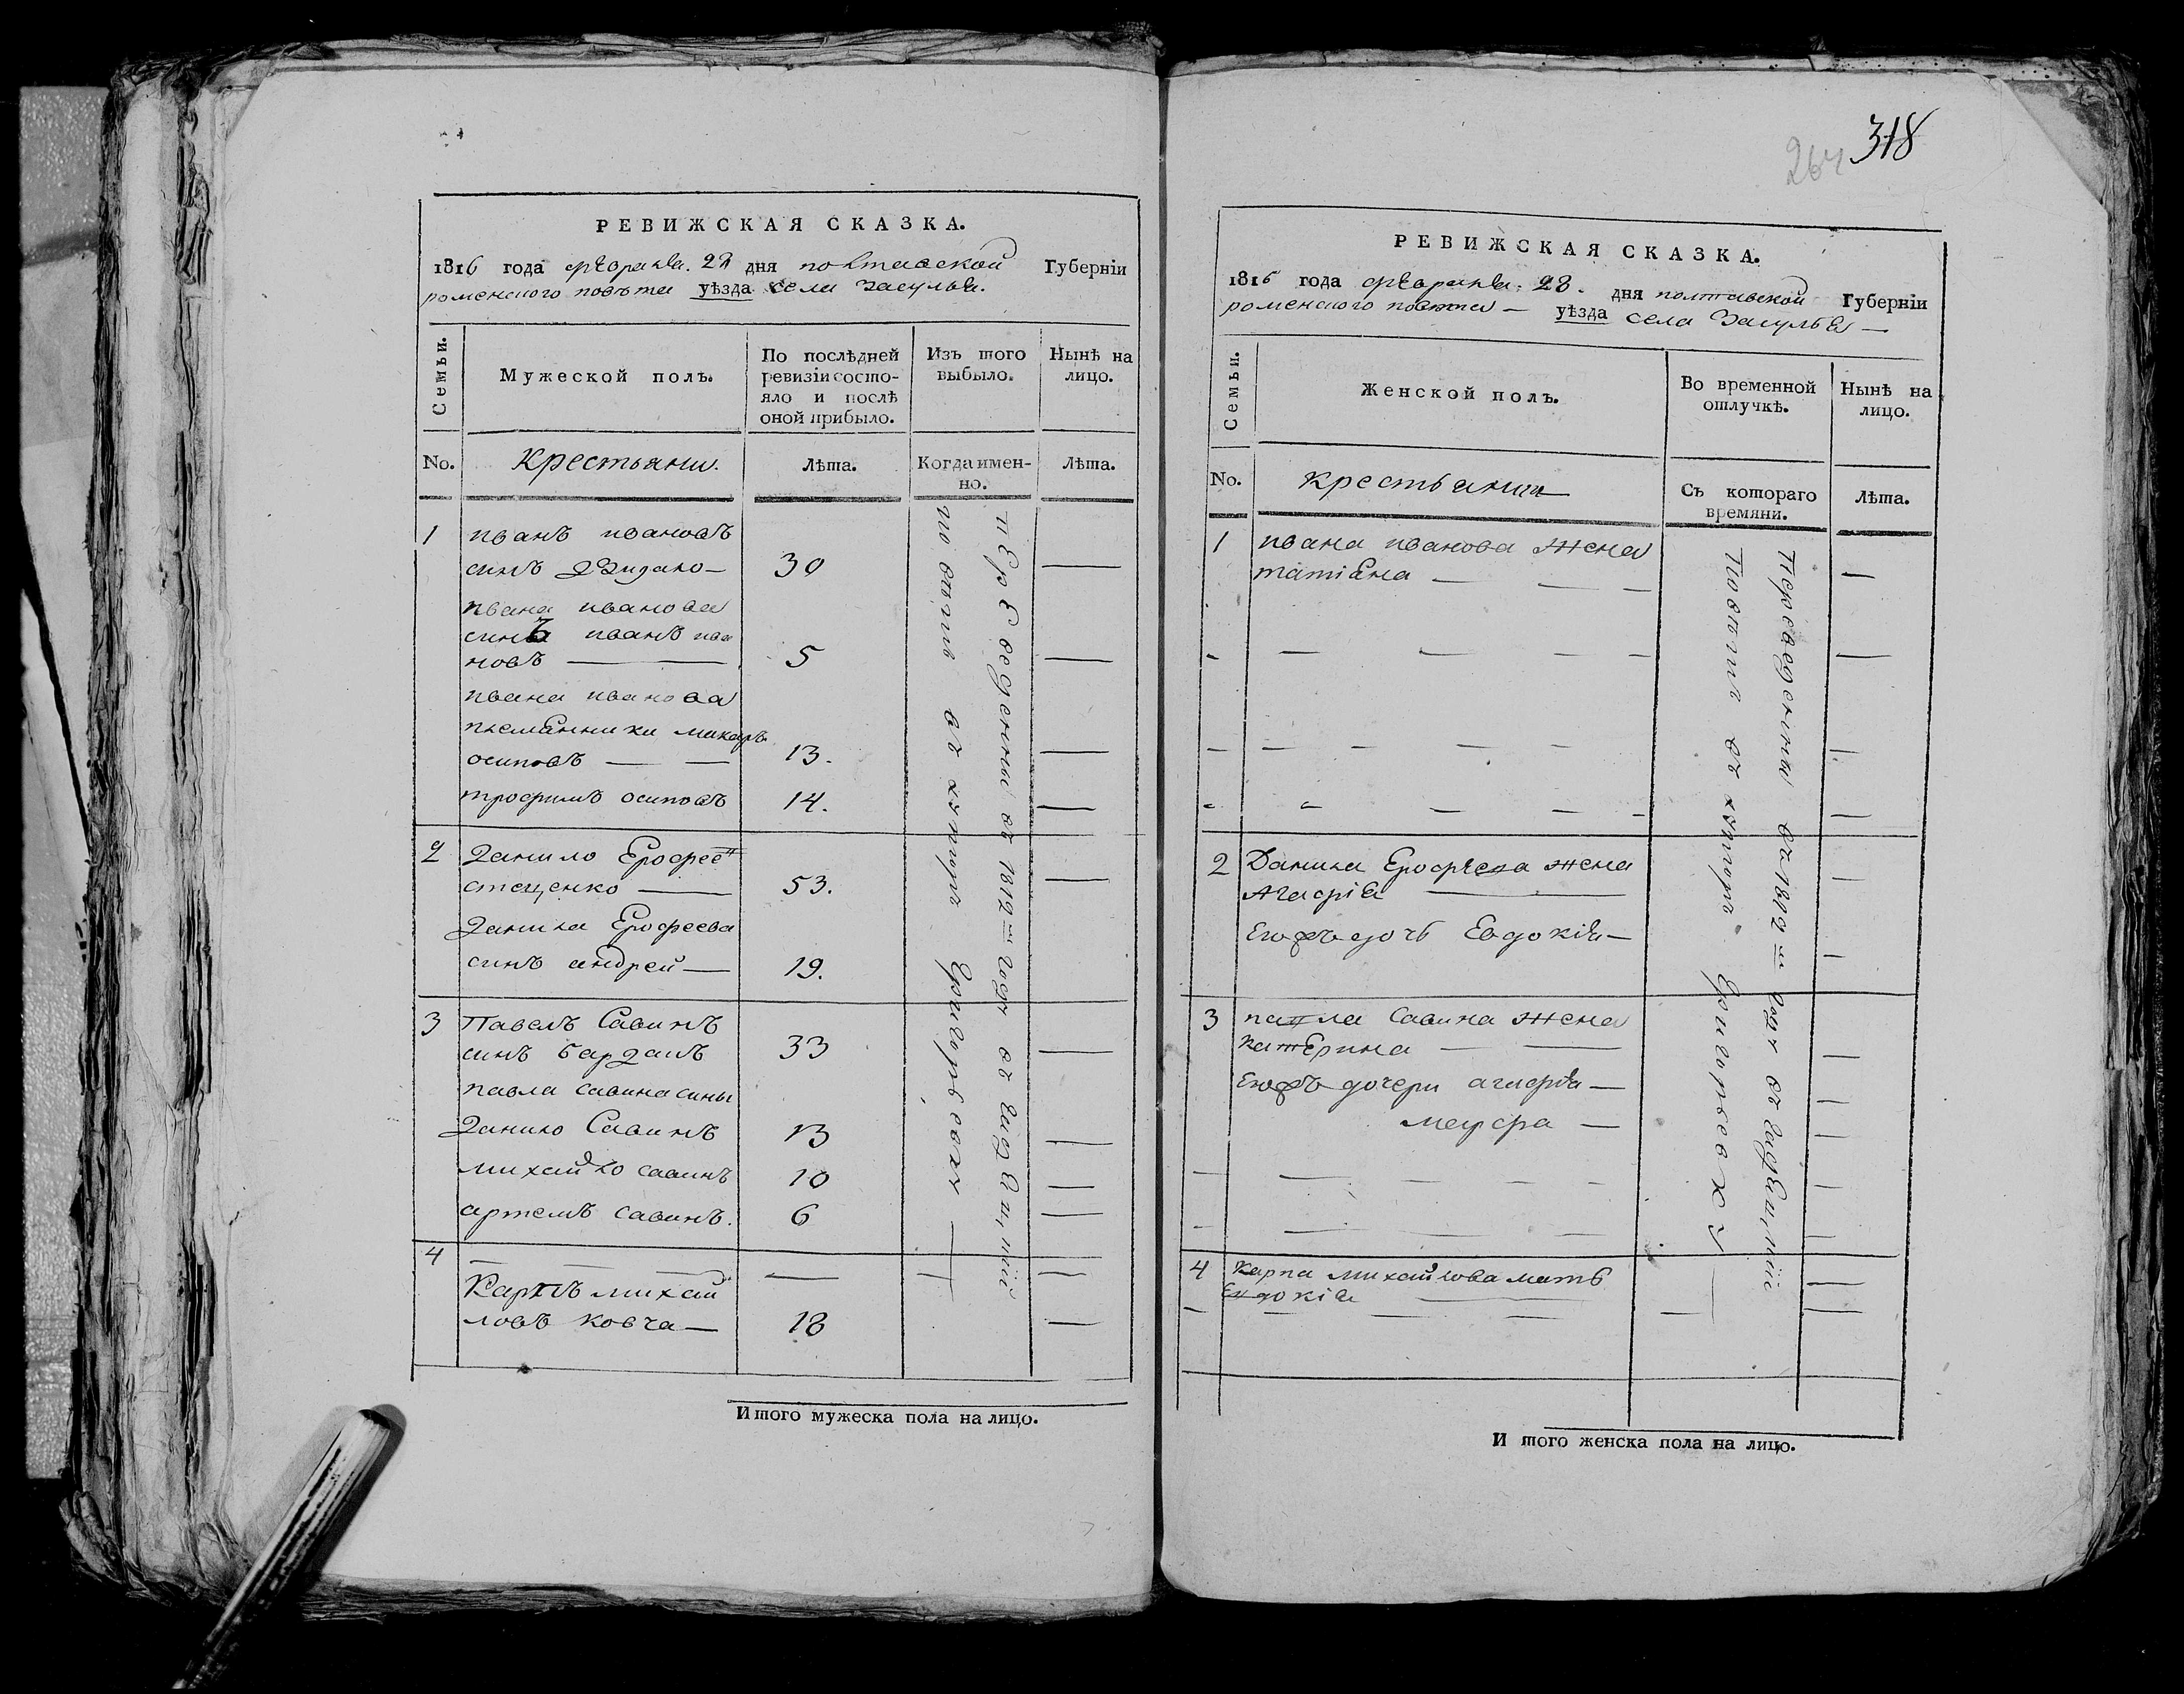 РЕВИЖСКАЯ СКАЗКА.
1816 года февраля. 28 дня полтавской Губерніи
роменского повѣта уѣзда села Засулья.
Семьи.
Мужеской полъ.
По послѣдней
ревизіи состо-
яло и послѣ
оной прибыло.
Изъ того
выбыло.
Нынѣ на
лицо.
No.
Крестьяни.
Лѣта.
Когда имен-
но.
Лѣта.
1 иванъ ивановъ
синъ 30
ивана иванова
синъ иванъ ива
новъ 5
ивана иванова
племенники макаръ
осиповъ 13.
трофимъ осиповъ 14.
2 Данило Ерофее
стеценко 53.
Данила Ерофеева
синъ андрей 19.
3 Павелъ Савинъ
синъ 33
павла савина сины
Данило Савинъ 13
михайло савинъ 10
артемъ савинъ. 6
4
Карпъ михай
ловъ ковча 18
переведенны въ 1812 м году въ
по ватпв въ хуторъ Григорьевку
Итого мужеска пола на лицо.
264 318
РЕВИЖСКАЯ СКАЗКА.
1816 года февраля. 28. дня полтавской Губерніи
роменского повѣта уѣзда села Засулья
Семьи.
Женской полъ.
Во временной
отлучкѣ.
Нынѣ на
лицо.
No.
крестьянки
Съ котораго
времяни.
Лѣта.
1 ивана иванова жена
татіяна
2 Данила Ерофеева жена
Агафія
Его дочь Евдокія
3 павла Савина жена
катерина
Его дочери агафія
4 Карпа михайлова мать
Евдокія
Переведенны въ 1812 м году въ
въ хуторъ
И того женска пола на лицо.